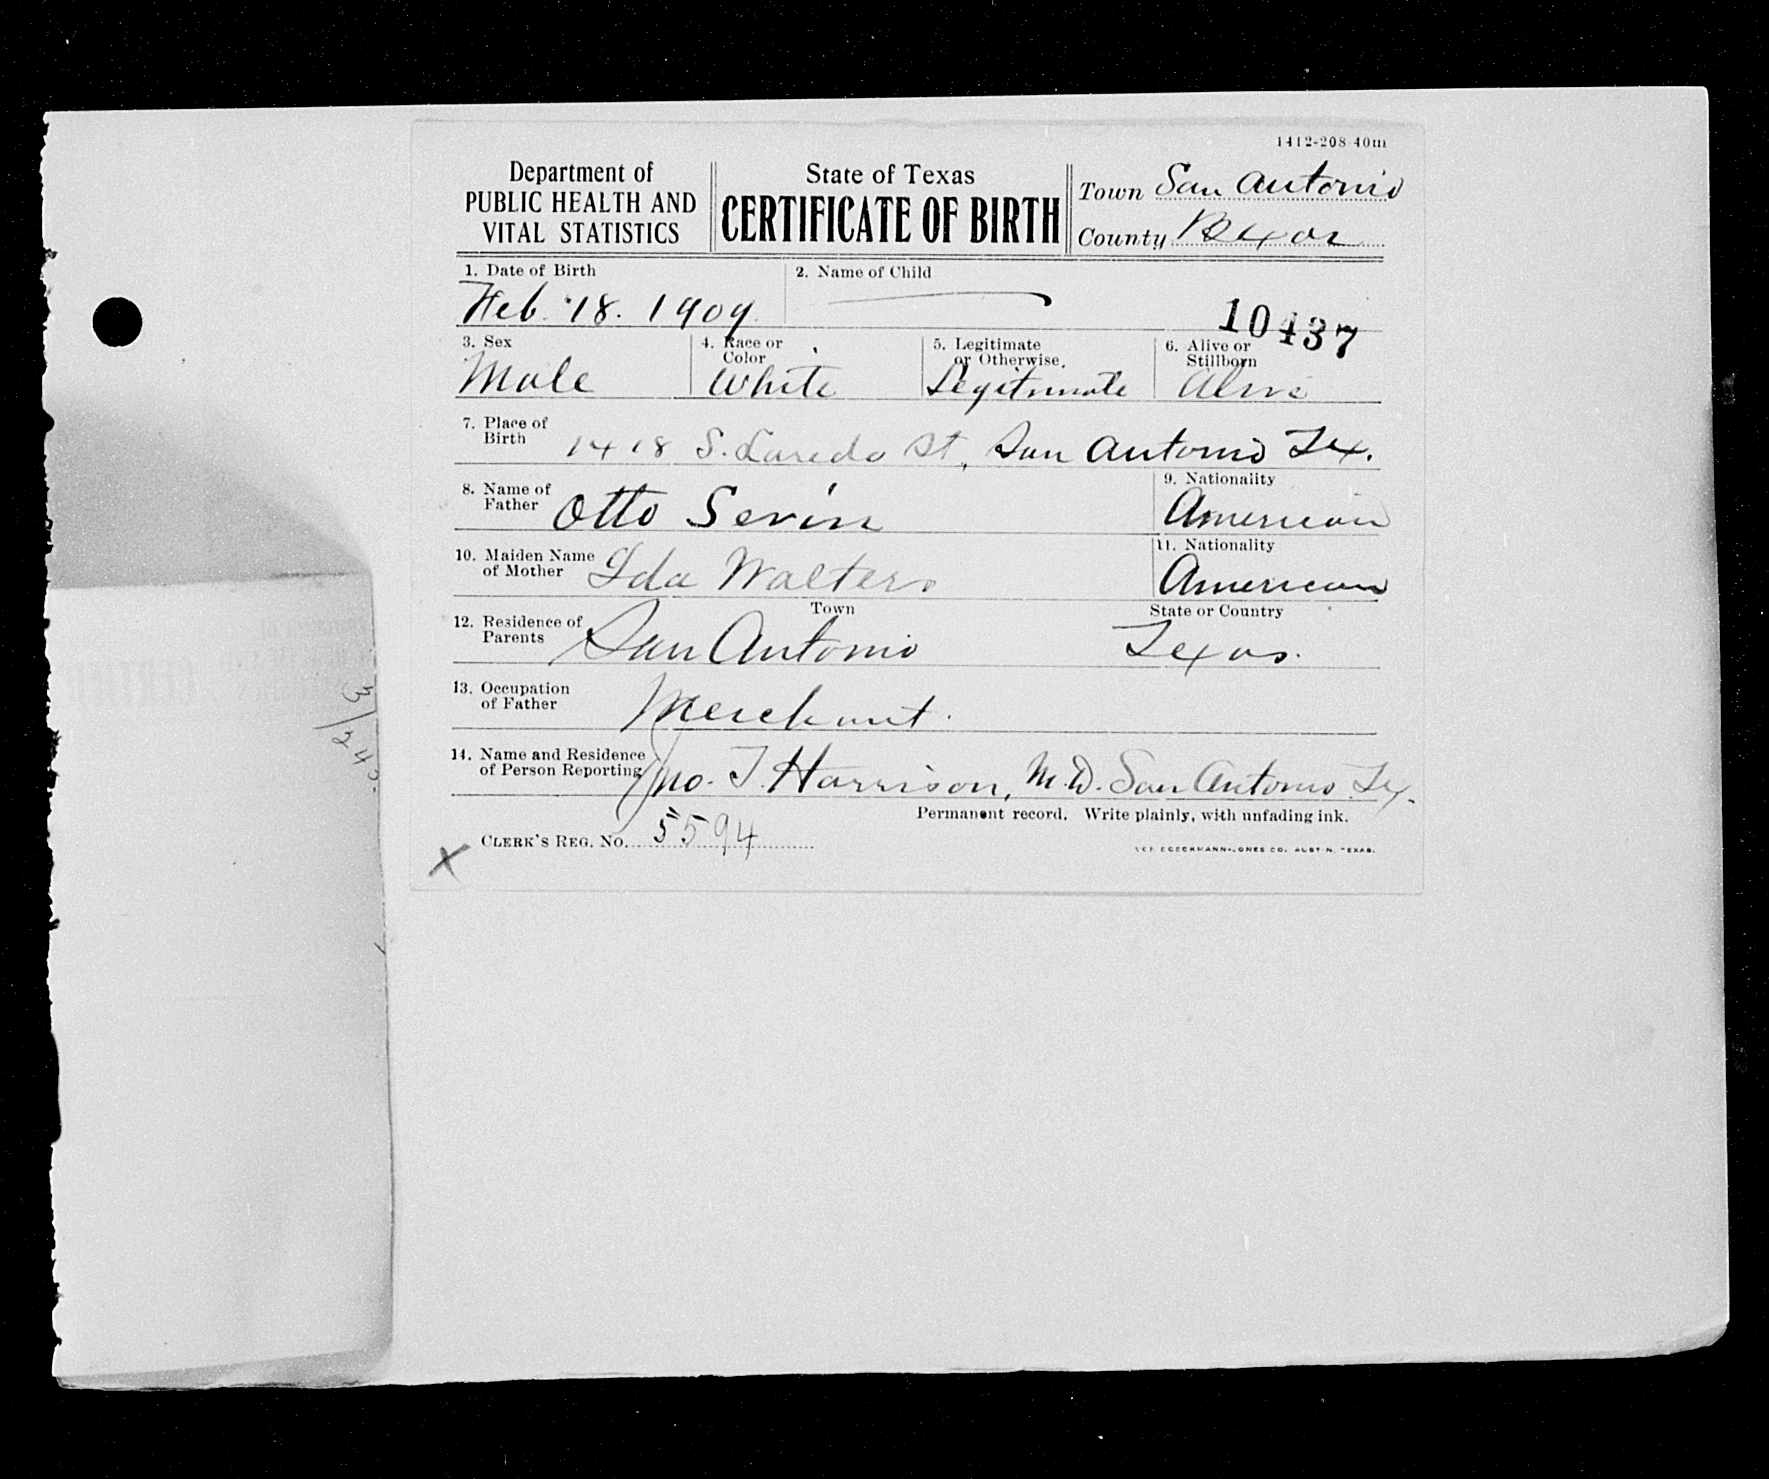 1412-208-40m
Department of
PUBLIC HEALTH AND
VITAL STATISTICS
State of Texas
CERTIFICATE OF BIRTH
Town San Antonio
County Bexar
1. Date of Birth
Feb. 18. 1909
2. Name of Child
10437
3. Sex
Male
4. Race or
Color
White
5. Legitimate
or Otherwise.
Legitimate
6. Alive or
Stillborn
Alive
7. Place of
Birth
1418 S. Laredo St, San Antonio Tex.
8. Name of
Father
Otto Sevin
9. Nationality
American
10. Maiden Name
of Mother
Ida Walters
11. Nationality
American
12. Residence of
Parents
Town
San Antonio
State or Country
Texas.
13. Occupation
of Father
Merchant.
14. Name and Residence
of Person Reporting
Jno. T. Harrison, M.D. San Antonio Tex.
Permanent record. Write plainly, with unfading ink.
CLERK'S REG. NO. 5594
X